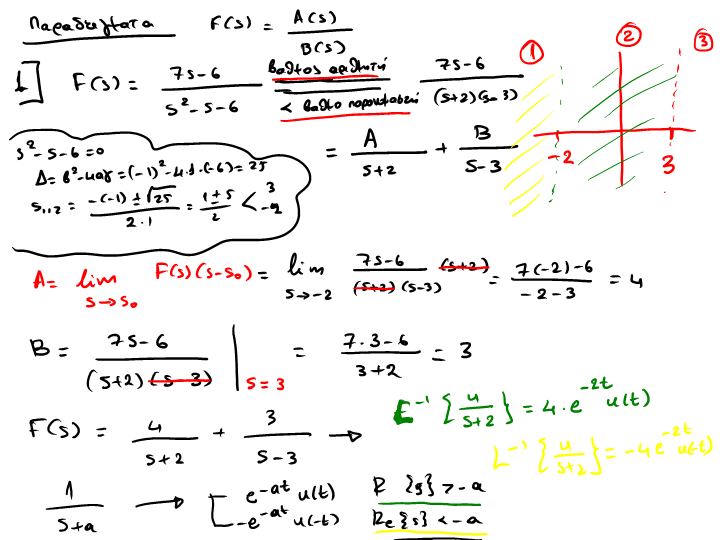 Παραδείγματα F(s) = A(s) / B(s)
① ② ③
1] F(s) = (7s-6) / (s²-s-6) βαθμός αριθμητή < βαθμό παρονομαστή (7s-6) / ((s+2)(s-3))
= A / (s+2) + B / (s-3)
-2 3
s²-s-6=0
Δ=β²-4αγ=(-1)²-4·1·(-6)=25
s₁,₂ = (-(-1) ± √25) / (2·1) = (1±5) / 2 < 3 -2
A = lim s→s₀ F(s)(s-s₀) = lim s→-2 (7s-6) / ((s+2)(s-3)) (s+2) = (7(-2)-6) / (-2-3) = 4
B = (7s-6) / ((s+2)(s-3)) | s=3 = (7·3-6) / (3+2) = 3
L⁻¹ {4 / (s+2)} = 4·e^(-2t) u(t)
F(s) = 4 / (s+2) + 3 / (s-3) →
L⁻¹ {4 / (s+2)} = -4e^(-2t) u(-t)
1 / (s+a) → e^(-at) u(t) R {s} > -a
-e^(-at) u(-t) Re{s} < -a